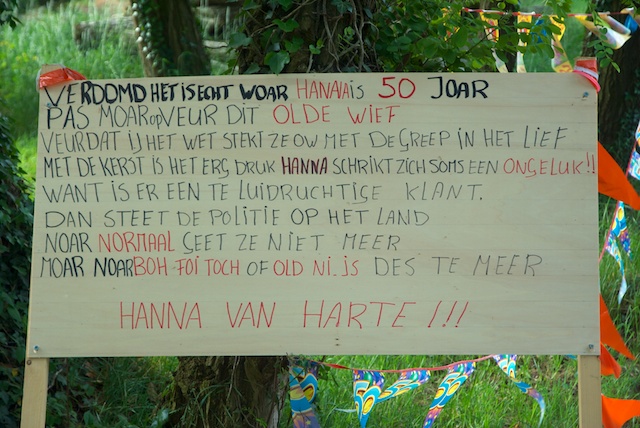 VERDOMD HET IS ECHT WOAR HANNA is 50 JOAR
PAS MOAR op VEUR DIT OLDE WIEF
VEURDAT IJ HET WET STEKT ZE OW MET DE GREEP IN HET LIEF
MET DE KERST IS HET ERG DRUK HANNA SCHRIKT ZICH SOMS EEN ONGELUK!!
WANT IS ER EEN TE LUIDRUCHTIGE KLANT.
DAN STEET DE POLITIE OP HET LAND
NOAR NORMAAL GEET ZE NIET MEER
MOAR NOAR BOH FOI TOCH OF OLD NI.JS DES TE MEER
HANNA VAN HARTE !!!